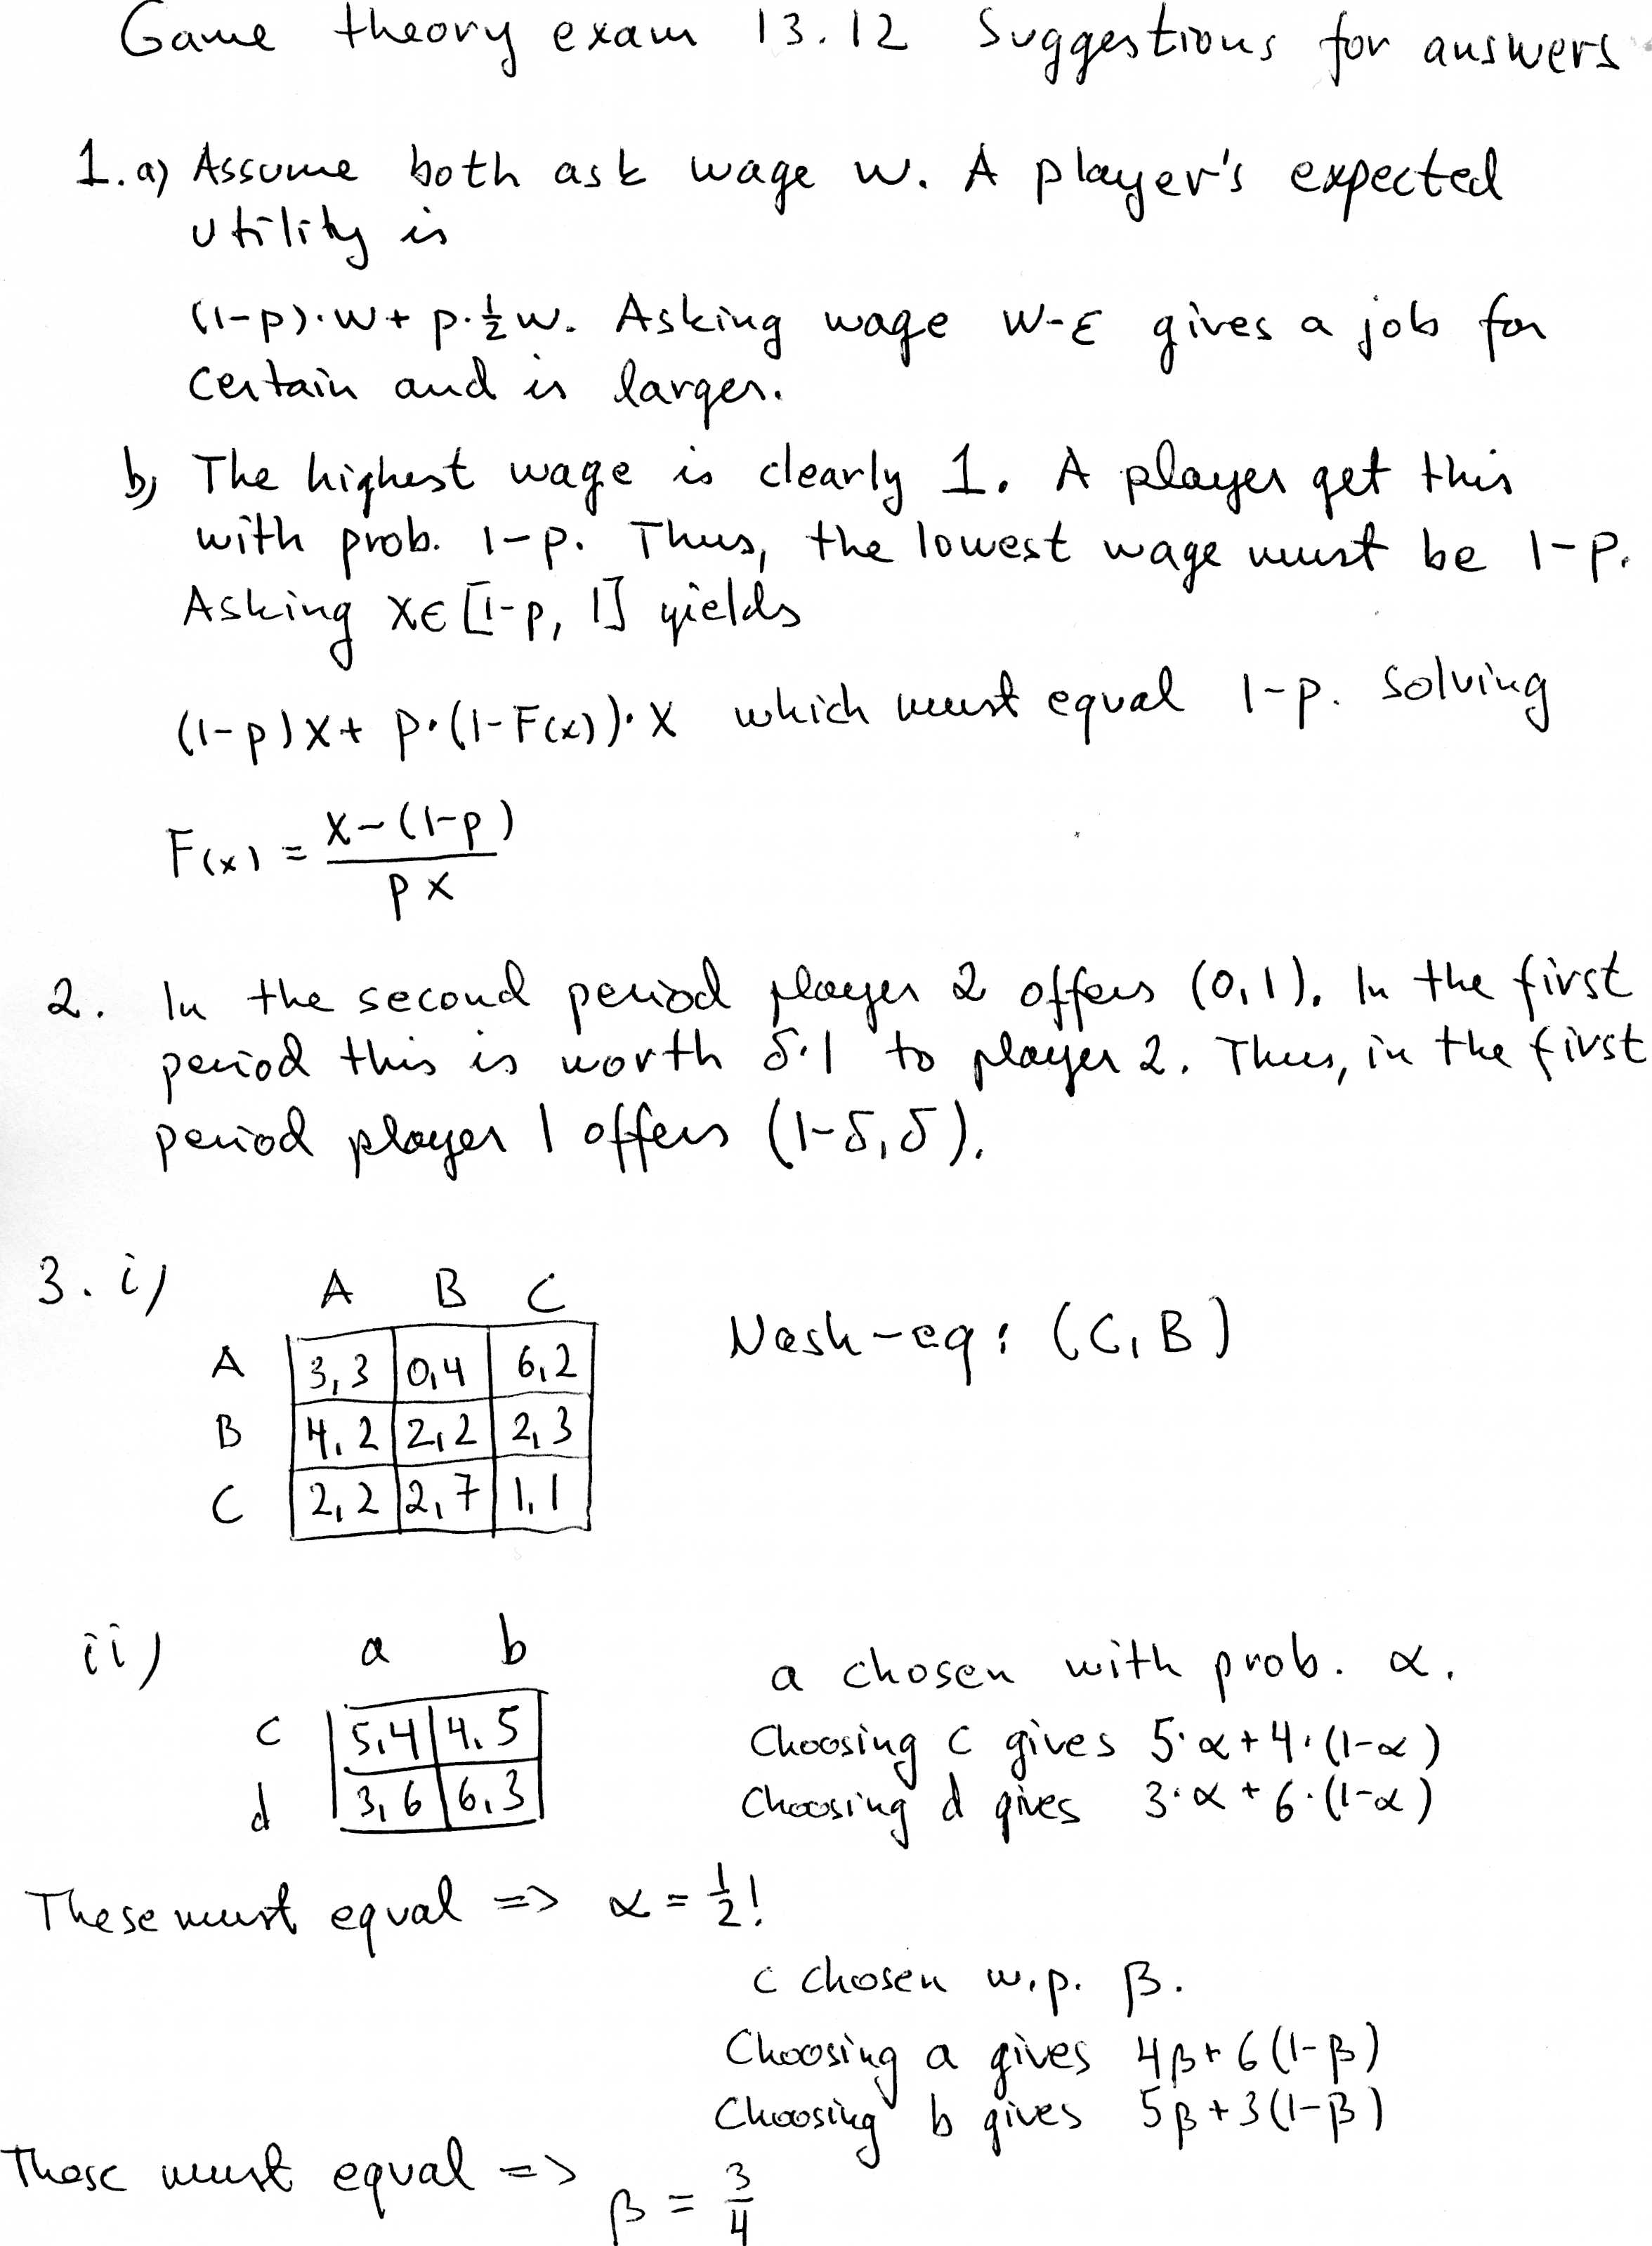 Game theory exam 13.12 Suggestions for answers
1. a) Assume both ask wage w. A player's expected
utility is
(1-p)·w + p·½w. Asking wage w-ε gives a job for
certain and is larger.
b) The highest wage is clearly 1. A player get this
with prob. 1-p. Thus, the lowest wage must be 1-p.
Asking x∈[1-p, 1] yields
(1-p)x + p·(1-F(x))·x which must equal 1-p. Solving
F(x) = \frac{x-(1-p)}{px}
2. In the second period player 2 offers (0,1). In the first
period this is worth δ·1 to player 2. Thus, in the first
period player 1 offers (1-δ, δ).
3. i) A B C
A 3,3 0,4 6,2
B 4,2 2,2 2,3
C 2,2 2,7 1,1
Nash-eq: (C,B)
ii) a b
c 5,4 4,5
d 3,6 6,3
a chosen with prob. α.
Choosing c gives 5·α+4·(1-α)
Choosing d gives 3·α+6·(1-α)
These must equal => α = ½!
c chosen w.p. β.
Choosing a gives 4β+6(1-β)
Choosing b gives 5β+3(1-β)
These must equal => β = ¾